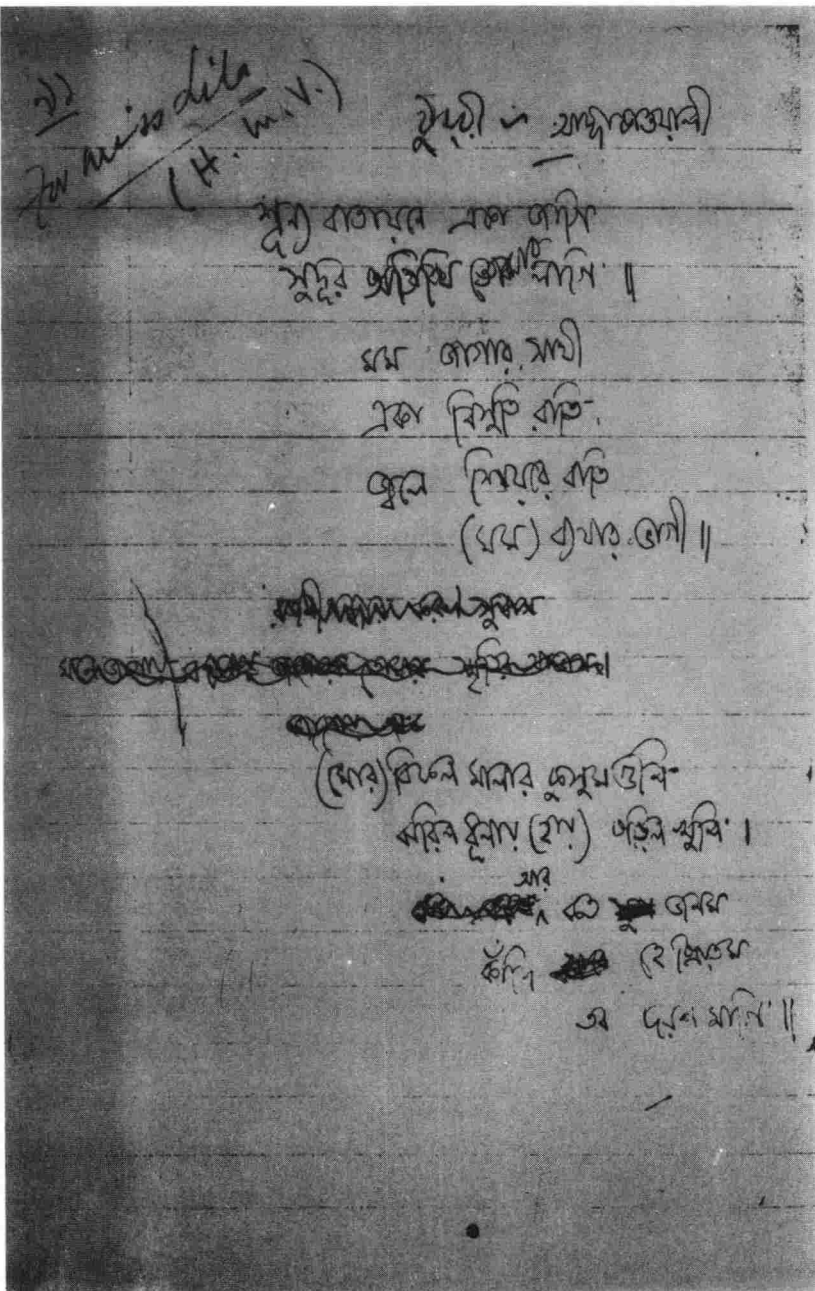 ২১
For miss Lila
(H. M. V.)
ঠুংরী — আদ্ধা কাওয়ালী
শূন্য বাতায়নে একা জাগি
সুদূর অতিথি তোমার লাগি ॥
মম জাগার সাথী
একা নিশুতি রাতি
জ্বলে শিয়রে বাতি
(মম) ব্যথার ভাগী ॥
(মোর) বিফল মালার কুসুমগুলি
ঝরিল ধূলায় (হায়) পড়িল খুলি ।
আর কত জনম
কাঁদি হে প্রিয়তম
তব দরশ মাগি ॥